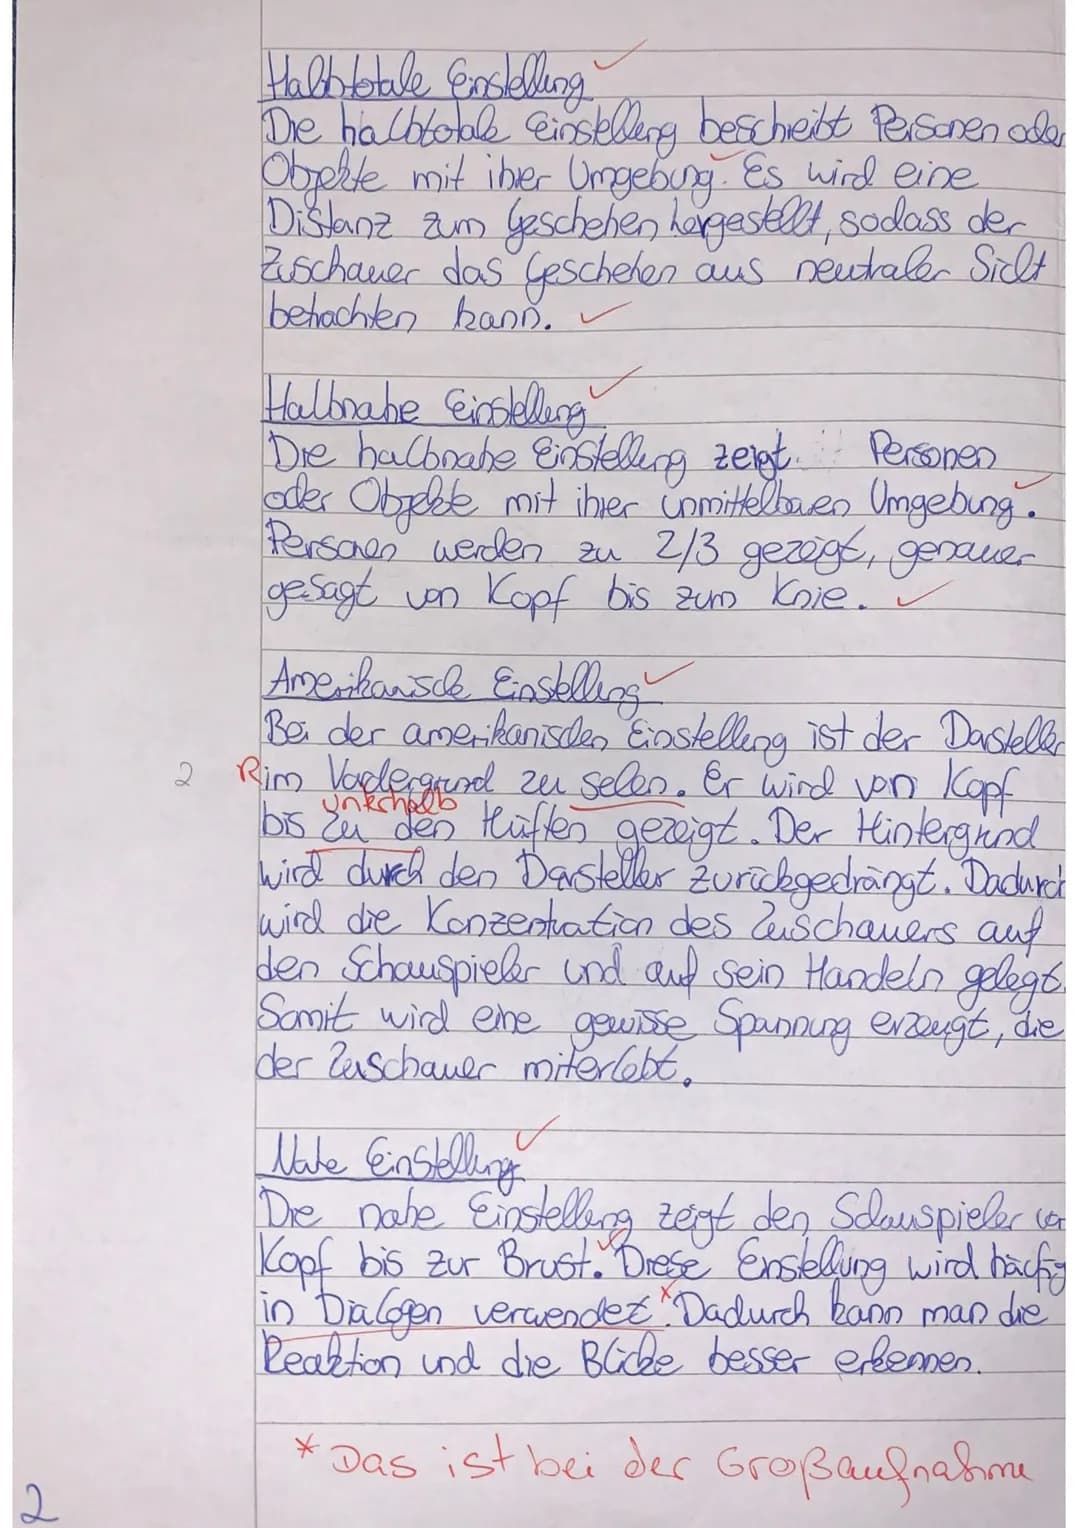 Halbtotale Einstellung
Die halbtotale Einstellung beschreibt Personen oder
Objekte mit ihrer Umgebung. Es wird eine
Distanz zum Geschehen hergestellt, sodass der
Zuschauer das Geschehen aus neutraler Sicht
betrachten kann.
Halbnahe Einstellung
Die halbnahe Einstellung zeigt Personen
oder Objekte mit ihrer unmittelbaren Umgebung.
Personen werden zu 2/3 gezeigt, genauer
gesagt von Kopf bis zum Knie.
Amerikanische Einstellung
Bei der amerikanischen Einstellung ist der Darsteller
2 R im Vordergrund zu sehen. Er wird von Kopf
unterhalb
bis zu den Hüften gezeigt. Der Hintergrund
wird durch den Darsteller zurückgedrängt. Dadurch
wird die Konzentration des Zuschauers auf
den Schauspieler und auf sein Handeln gelegt.
Somit wird eine gewisse Spannung erzeugt, die
der Zuschauer miterlebt.
Nahe Einstellung
Die nahe Einstellung zeigt den Schauspieler von
Kopf bis zur Brust. Diese Einstellung wird häufig
in Dialogen verwendet.* Dadurch kann man die
Reaktion und die Blicke besser erkennen.
* Das ist bei der Großaufnahme
2